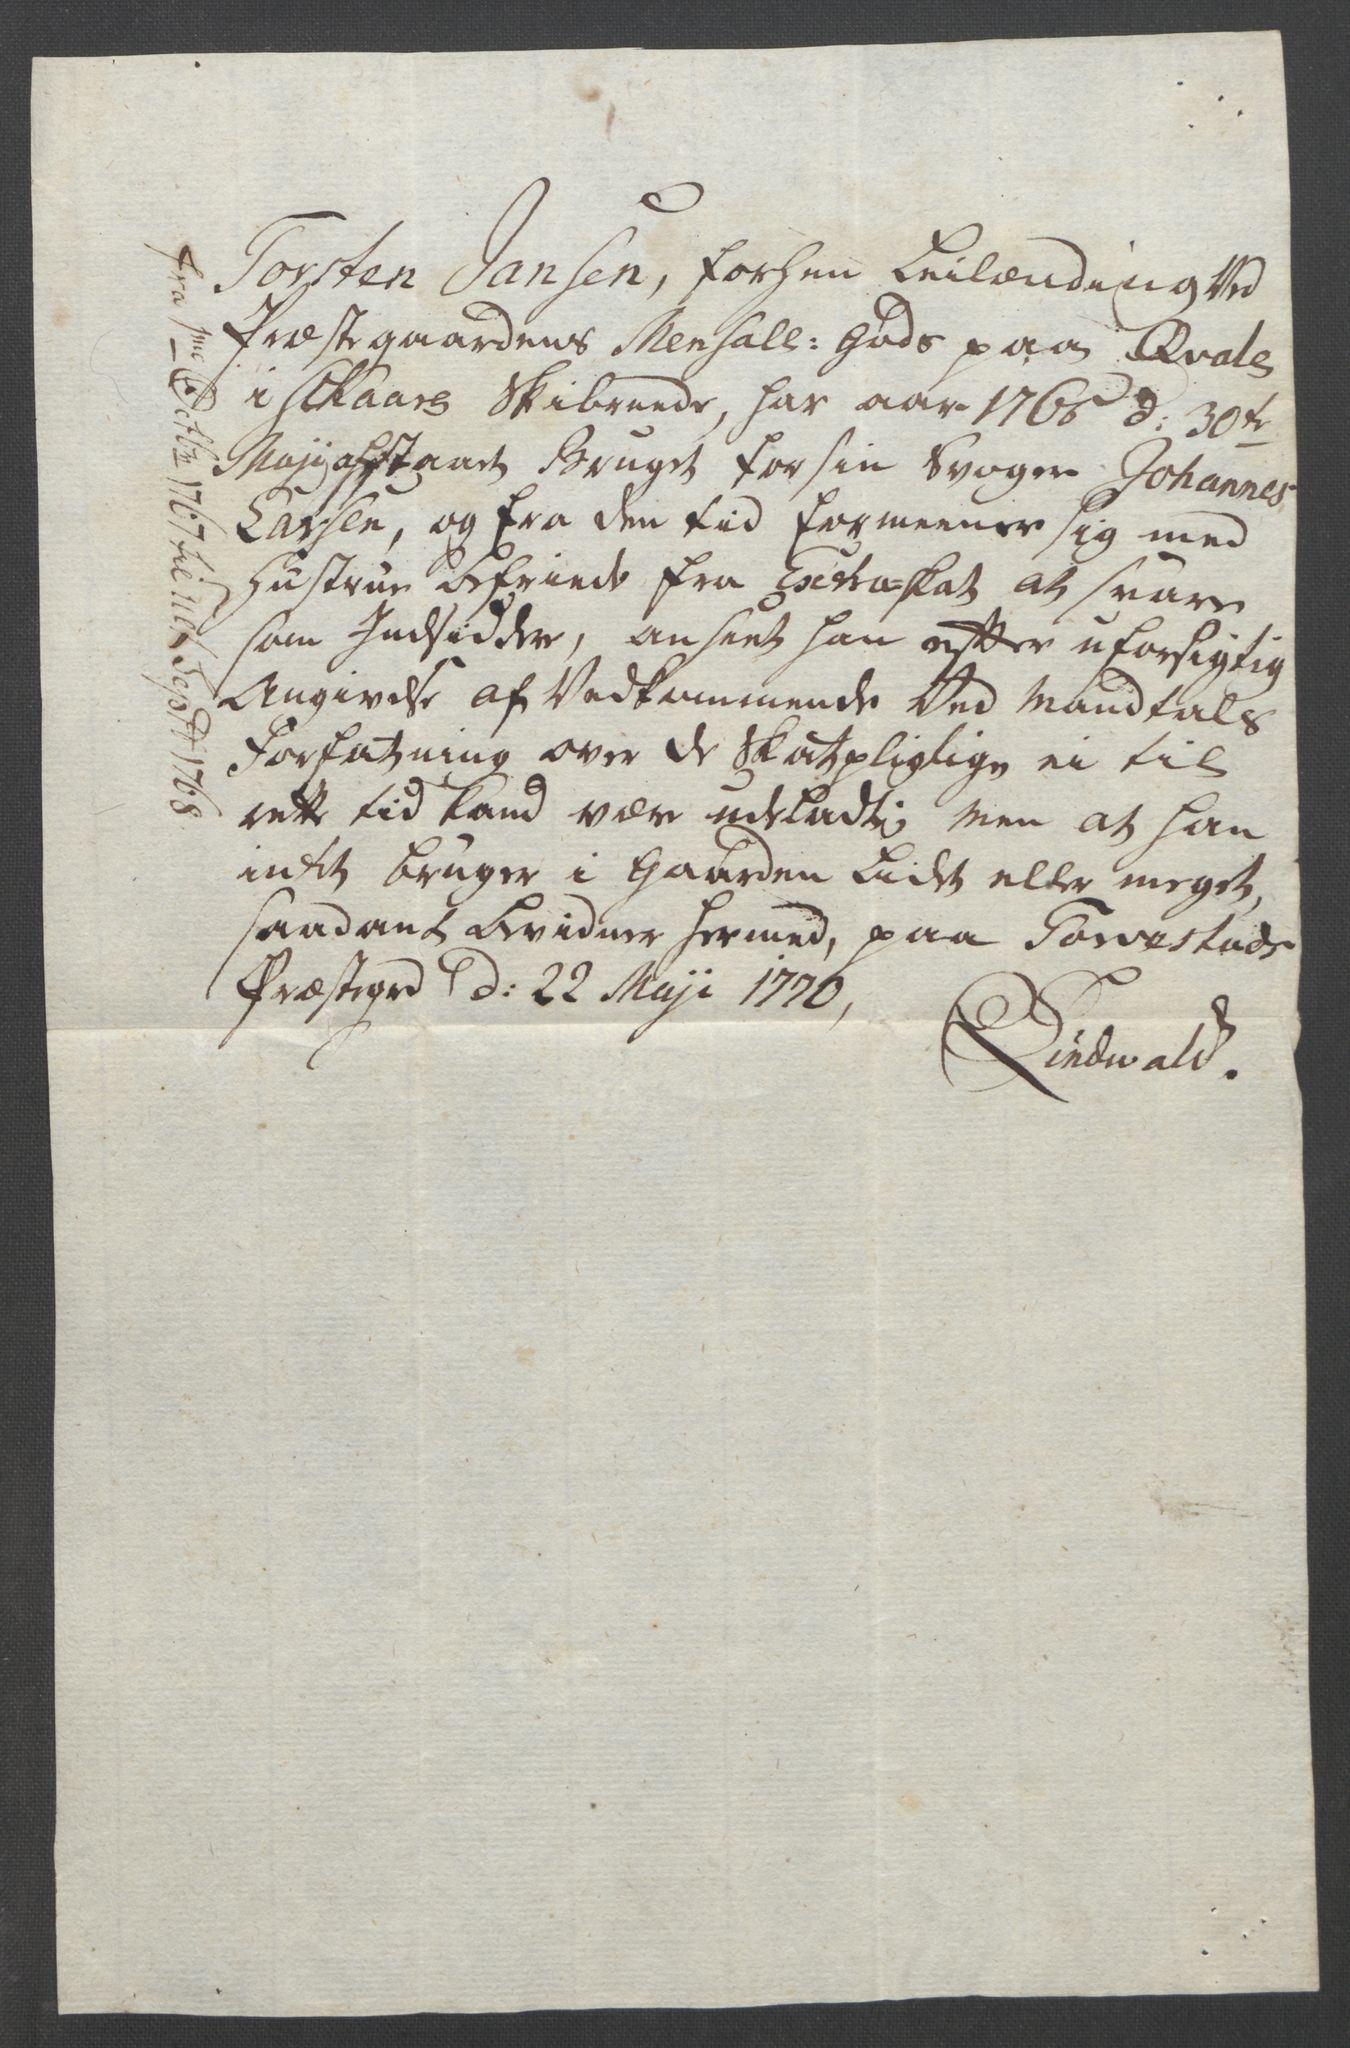 Torsten Jansen, forhen Leilænding Ved
Præstegaardens Mensall: Gods paa Qvale
i Skaare Skibrede, har aar 1765 d: 30te
Maji afstaaet Bruget for sin Svoger Johannes
Larsen, og fra den tid formeener sig med
Hustrue befriede fra Extra-skat at svare
som Indsiddere, anseet han efter uforsigtig
Angivelse af Vedkommende Ved Mandtals
Forfatning over de Skatpligtige ei til
rette tid kand være udeladt; Men at han
intet bruger i Gaarden Lidet eller meget,
saadant bevidner hermed, paa Torvestads
Præstegrd d: 22 Maji 1770,
Lindwald.
fra pmo Octbr 1767 til ult Septr 1768